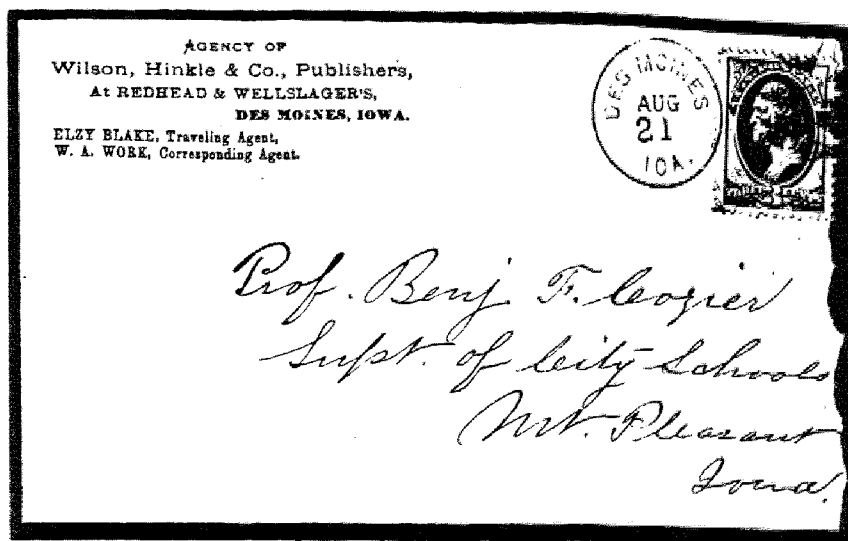 AGENCY OF
Wilson, Hinkle & Co., Publishers,
At REDHEAD & WELLSLAGER'S,
DES MOINES, IOWA.
ELZY BLAKE, Traveling Agent,
W. A. WORK, Corresponding Agent.
DES MOINES
AUG
21
IOA.
Prof. Benj. F. Cozier
Supt. of City Schools
Mt. Pleasant
Iowa.